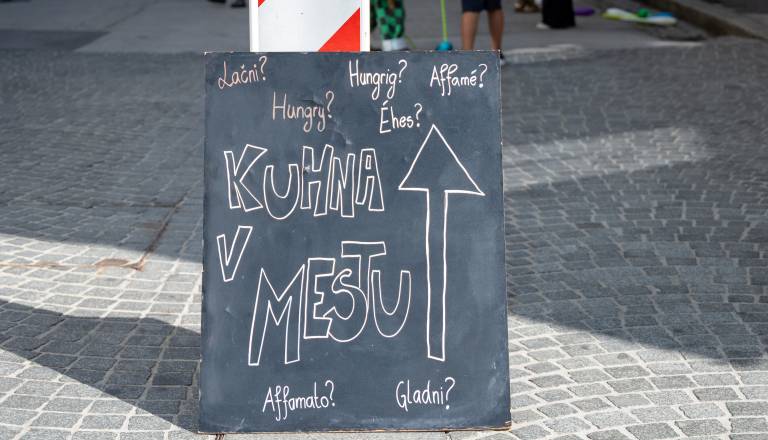 Lačni? Hungrig? Affamé?
Hungry? Éhes?
KUHNA
V
MESTU
Affamato? Gladni?